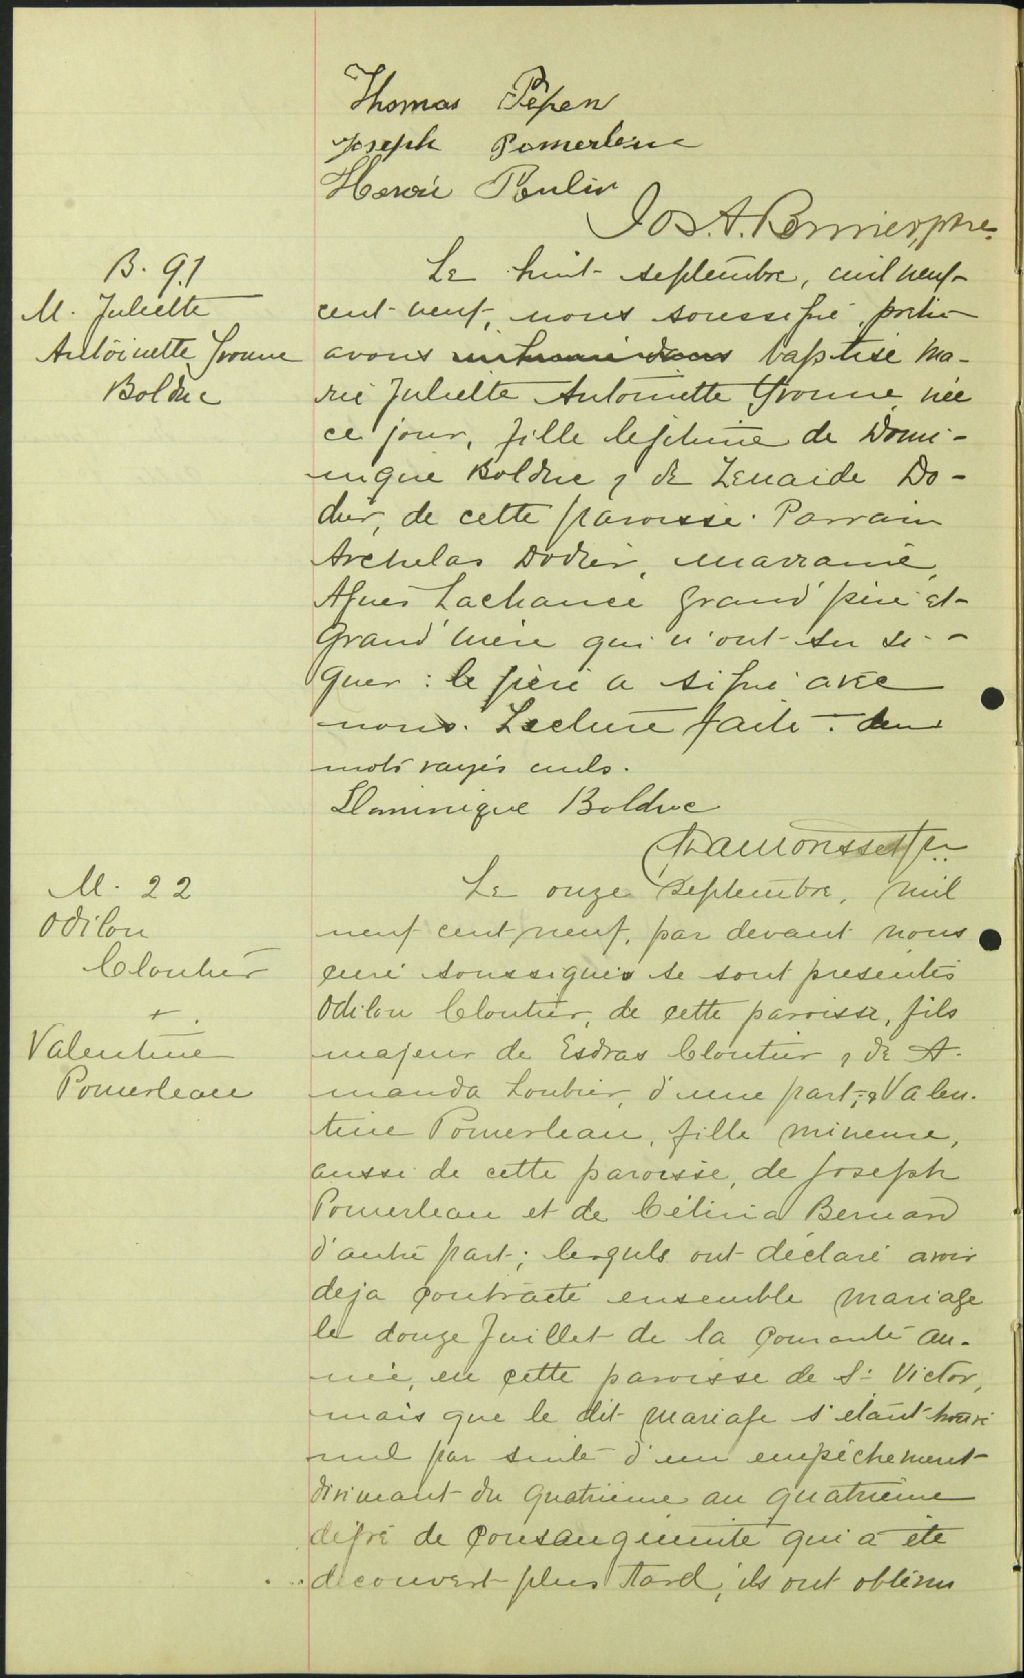 Thomas Pepen
Joseph Pomerleau
Henri Poulin
Jos. A. Bernier, ptre.
B. 91
M. Juliette
Antoinette Yvonne
Bolduc
Le huit septembre, mil neuf
cent neuf, nous soussigné, prêtre
avons baptisé Ma-
rie Juliette Antoinette Yvonne, née
ce jour, fille légitime de Domi-
nique Bolduc & de Zenaide Do-
dier, de cette paroisse. Parrain
Archelas Dodier, marraine,
Agnes Lachance grand'père et
Grand'mère qui n'ont su si-
gner : le père a signé avec
nous. Lecture faite. deux
mots rayés nuls.
Dominique Bolduc
M. 22
Odilon
Cloutier
+
Valentine
Pomerleau
Le onze septembre, mil
neuf cent neuf, par devant nous
curé soussignés se sont presentés
Odilon Cloutier, de cette paroisse, fils
majeur de Esdras Cloutier & de A-
manda Loubier, d'une part, & Valen-
tine Pomerleau, fille mineure,
aussi de cette paroisse, de Joseph
Pomerleau et de Célina Bernard
d'autre part ; lesquls ont déclaré avoir
deja contracté ensemble mariage
le douze Juillet de la courante an-
née, en cette paroisse de St Victor,
mais que le dit mariage s'étant trouvé
nul par suite d'un empêchement
dirimant du quatrième au quatrième
degré de consanguinité qui a été
decouvert plus tard, ils ont obtenu